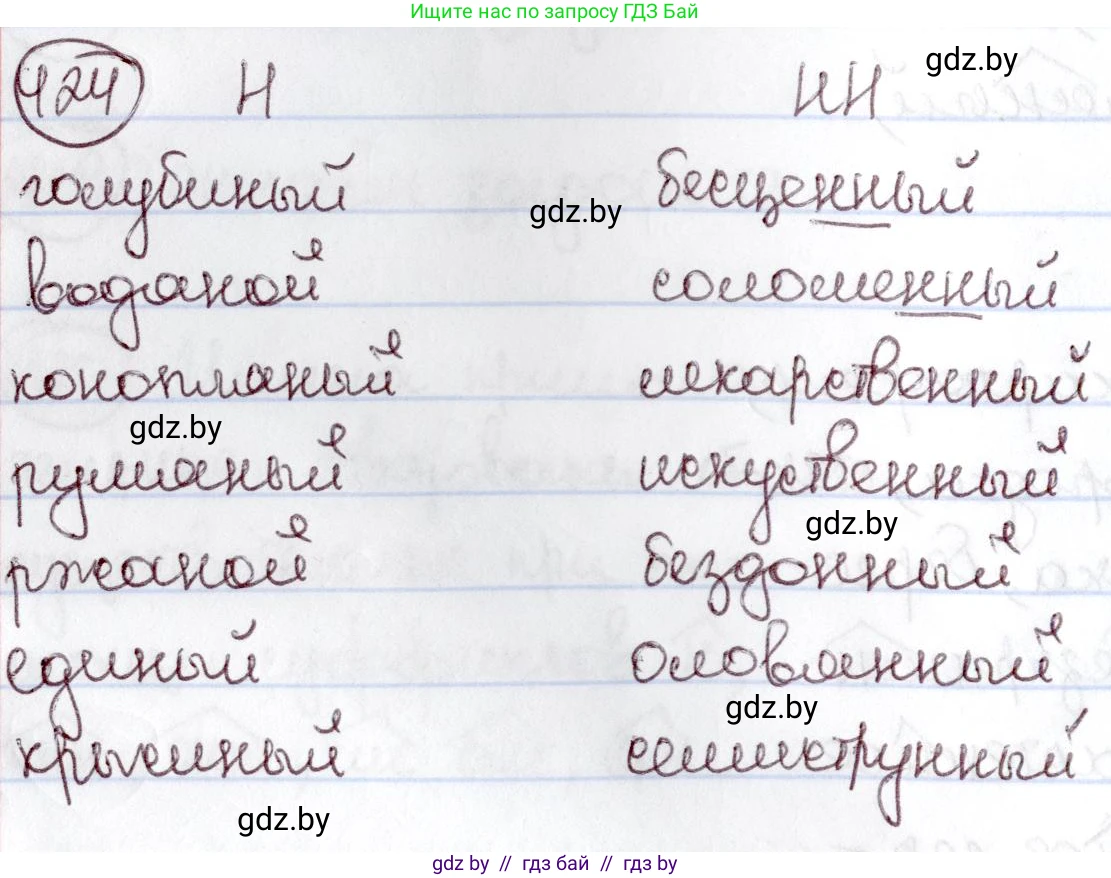 Ищите нас по запросу ГДЗ Бай
424 Н НН gdz.by
голубиный gdz.by бесценный
водяной соломенный
конопляный лекарственный
gdz.by
румяный искуственный
gdz.by
ржаной бездонный
единый оловянный
gdz.by
крысиный семиструнный
gdz.by
gdz.by // гдз бай // гдз by